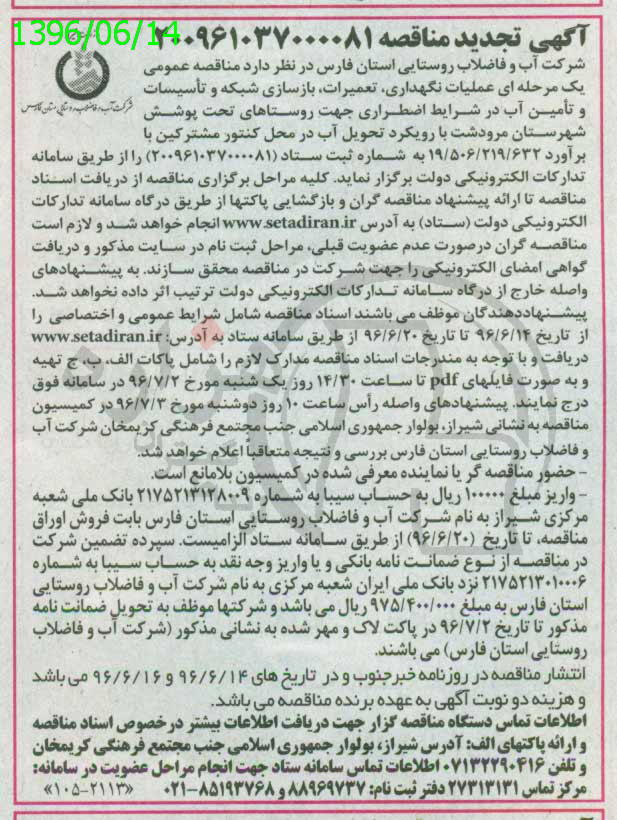 1396/06/14
آگهی تجدید مناقصه ۲۰۰۹۶۱۰۳۷۰۰۰۰۸۱
شرکت آب و فاضلاب روستایی استان فارس در نظر دارد مناقصه عمومی
یک مرحله ای عملیات نگهداری، تعمیرات، بازسازی شبکه و تأسیسات
و تأمین آب در شرایط اضطراری جهت روستاهای تحت پوشش
شهرستان مرودشت با رویکرد تحویل آب در محل کنتور مشترکین با
شرکت آب و فاضلاب روستایی استان فارس
برآورد ۱۹/۵۰۶/۲۱۹/۶۳۲ به شماره ثبت ستاد (۲۰۰۹۶۱۰۳۷۰۰۰۰۸۱) را از طریق سامانه
تدارکات الکترونیکی دولت برگزار نماید. کلیه مراحل برگزاری مناقصه از دریافت اسناد
مناقصه تا ارائه پیشنهاد مناقصه گران و بازگشایی پاکتها از طریق درگاه سامانه تدارکات
الکترونیکی دولت (ستاد) به آدرس www.setadiran.ir انجام خواهد شد و لازم است
مناقصه گران درصورت عدم عضویت قبلی، مراحل ثبت نام در سایت مذکور و دریافت
گواهی امضای الکترونیکی را جهت شرکت در مناقصه محقق سازند. به پیشنهادهای
واصله خارج از درگاه سامانه تدارکات الکترونیکی دولت ترتیب اثر داده نخواهد شد.
پیشنهاددهندگان موظف می باشند اسناد مناقصه شامل شرایط عمومی و اختصاصی را
از تاریخ ۹۶/۶/۱۴ تا تاریخ ۹۶/۶/۲۰ از طریق سامانه ستاد به آدرس: www.setadiran.ir
دریافت و با توجه به مندرجات اسناد مناقصه مدارک لازم را شامل پاکات الف، ب، ج تهیه
و به صورت فایلهای pdf تا ساعت ۱۴/۳۰ روز یک شنبه مورخ ۹۶/۷/۲ در سامانه فوق
درج نمایند. پیشنهادهای واصله رأس ساعت ۱۰ روز دوشنبه مورخ ۹۶/۷/۳ در کمیسیون
مناقصه به نشانی شیراز، بولوار جمهوری اسلامی جنب مجتمع فرهنگی کریمخان شرکت آب
و فاضلاب روستایی استان فارس بررسی و نتیجه متعاقباً اعلام خواهد شد.
- حضور مناقصه گر یا نماینده معرفی شده در کمیسیون بلامانع است.
- واریز مبلغ ۱۰۰۰۰۰ ریال به حساب سیبا به شماره ۲۱۷۵۲۱۳۱۲۸۰۰۹ بانک ملی شعبه
مرکزی شیراز به نام شرکت آب و فاضلاب روستایی استان فارس بابت فروش اوراق
مناقصه، تا تاریخ (۹۶/۶/۲۰) از طریق سامانه ستاد الزامیست. سپرده تضمین شرکت
در مناقصه از نوع ضمانت نامه بانکی و یا واریز وجه نقد به حساب سیبا به شماره
۲۱۷۵۲۱۳۰۱۰۰۰۶ نزد بانک ملی ایران شعبه مرکزی به نام شرکت آب و فاضلاب روستایی
استان فارس به مبلغ ۹۷۵/۴۰۰/۰۰۰ ریال می باشد و شرکتها موظف به تحویل ضمانت نامه
مذکور تا تاریخ ۹۶/۷/۲ در پاکت لاک و مهر شده به نشانی مذکور (شرکت آب و فاضلاب
روستایی استان فارس) می باشند.
انتشار مناقصه در روزنامه خبرجنوب و در تاریخ های ۹۶/۶/۱۴ و ۹۶/۶/۱۶ می باشد
و هزینه دو نوبت آگهی به عهده برنده مناقصه می باشد.
اطلاعات تماس دستگاه مناقصه گزار جهت دریافت اطلاعات بیشتر درخصوص اسناد مناقصه
و ارائه پاکتهای الف: آدرس شیراز، بولوار جمهوری اسلامی جنب مجتمع فرهنگی کریمخان
و تلفن ۰۷۱۳۲۲۹۰۴۱۶ اطلاعات تماس سامانه ستاد جهت انجام مراحل عضویت در سامانه:
مرکز تماس ۲۷۳۱۳۱۳۱ دفتر ثبت نام: ۸۸۹۶۹۷۳۷ و ۸۵۱۹۳۷۶۸-۰۲۱ «۱۰۵-۲۱۱۳»